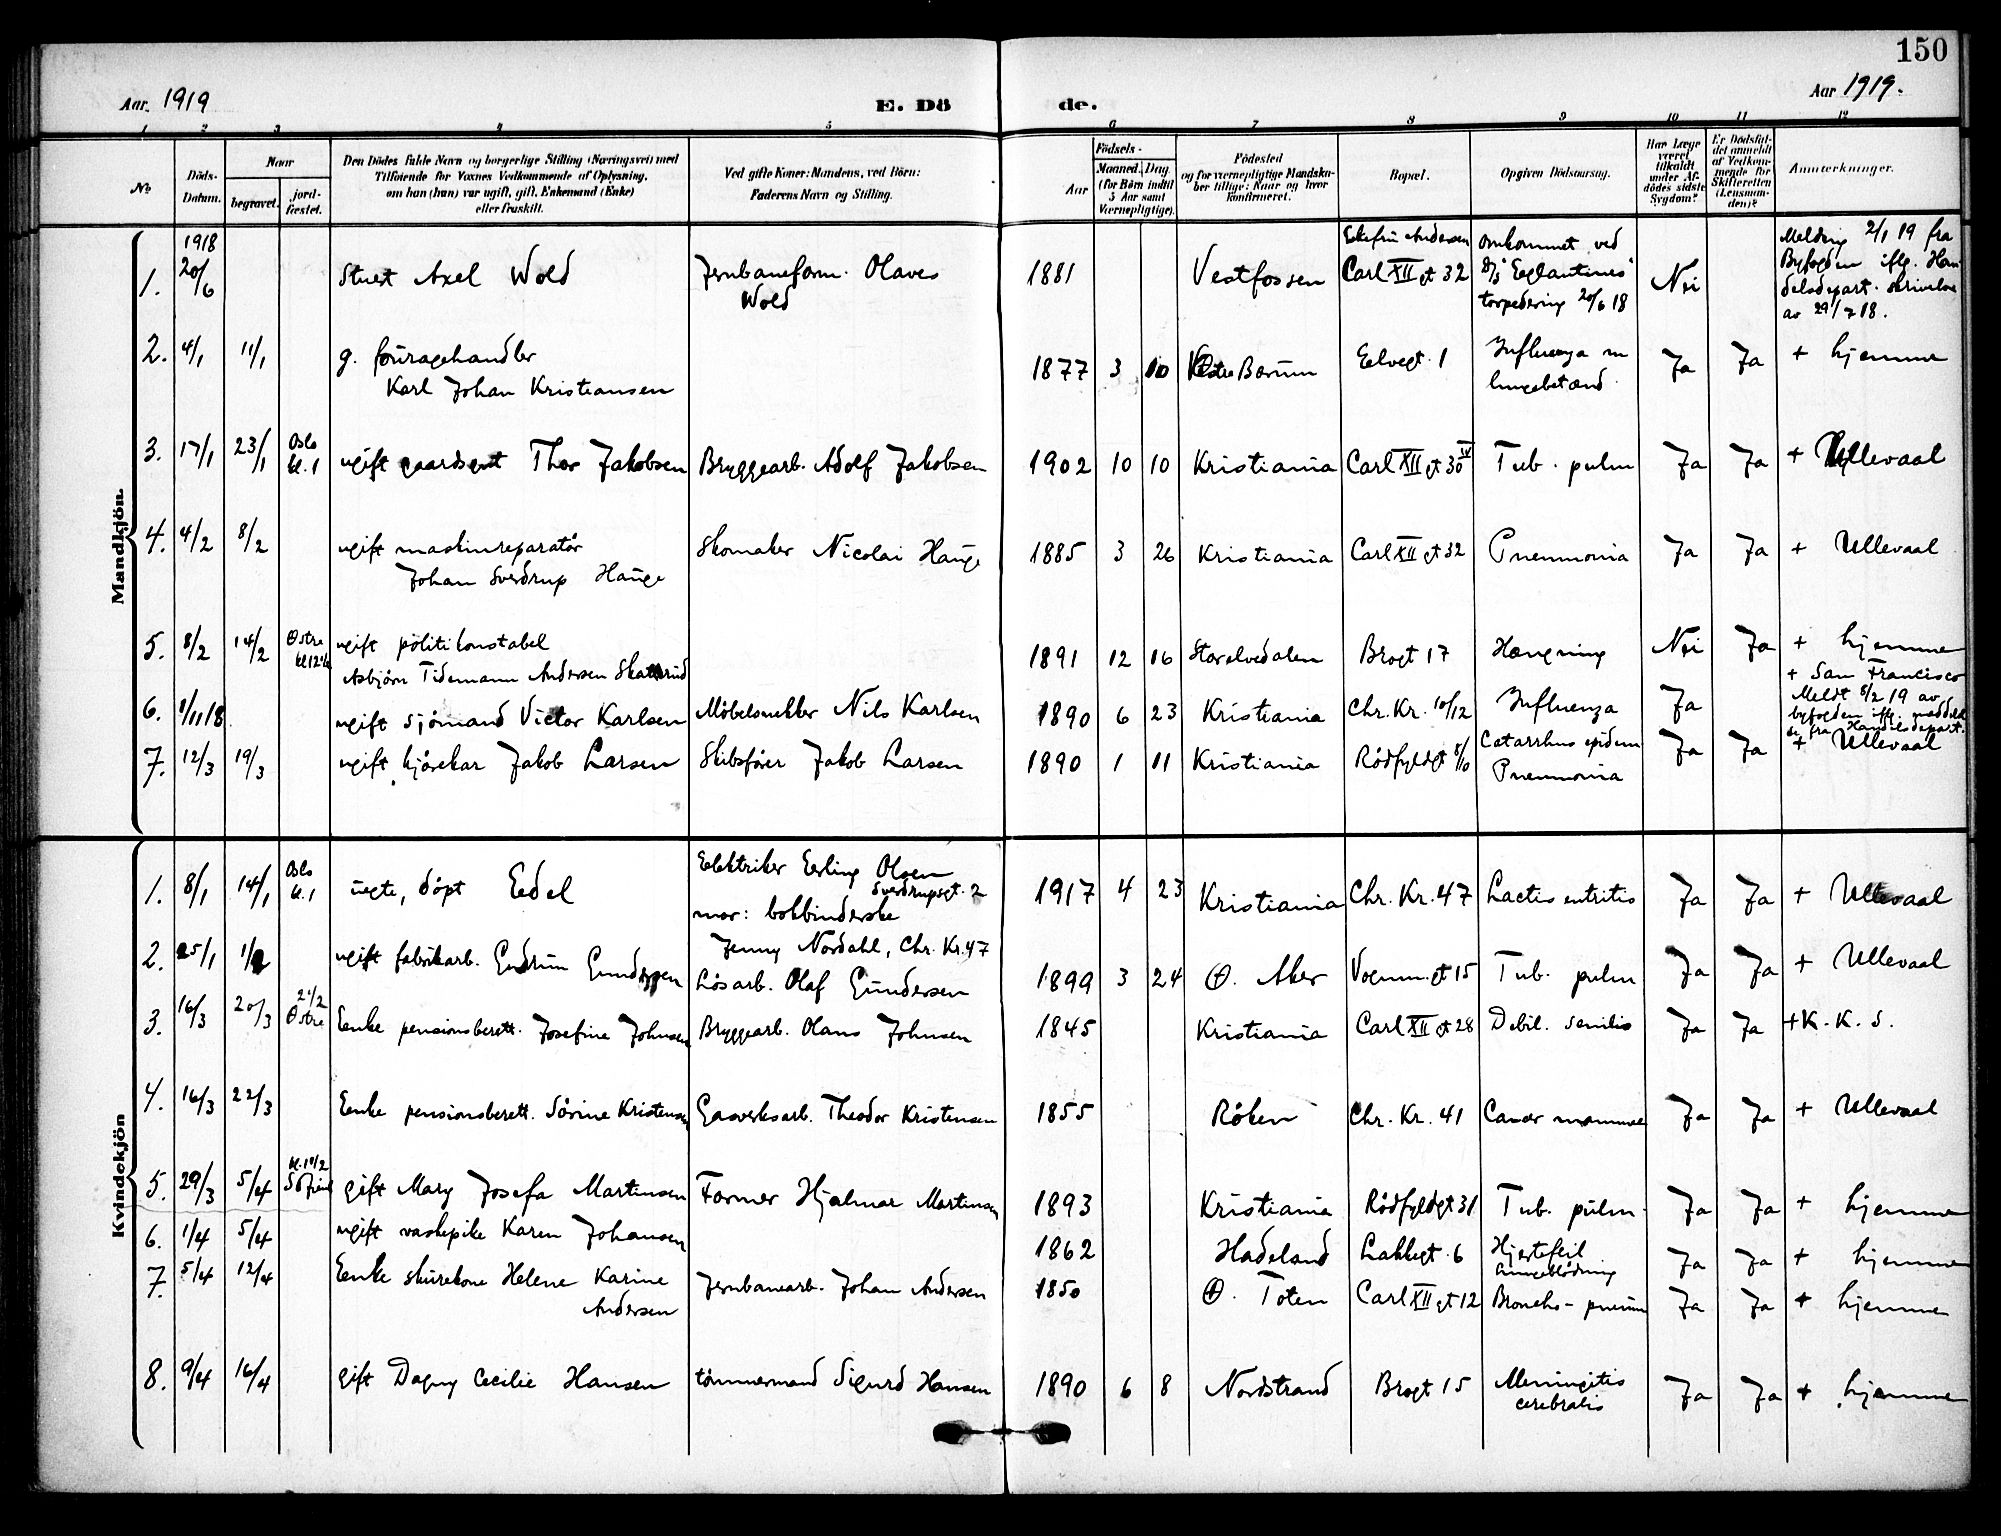 150
Aar. 1919
E. Dö
de.
Aar 1919.
1 2 3 4 5 6 7 8 9 10 11 12
No
Döds-Datum.
Naar
begravet.
jord-fæstet.
Den Dödes fulde Navn og borgerlige Stilling (Næringsvei) med
Tilföiende for Voxnes Vedkommende af Oplysning,
om han (hun) var ugift, gift, Enkemand (Enke)
eller fraskilt.
Ved gifte Koner: Mandens, ved Börn:
Faderens Navn og Stilling.
Födsels-
Aar
Maaned. Dag.
(for Börn indtil
5 Aar samt
Værnepligtige).
Födested
og for værnepligtige Mandska-
ber tillige: Naar og hvor
konfirmeret.
Bopæl.
Opgiven Dödsaarsag.
Har Læge
været
tilkaldt
under Af-
dödes sidste
Sygdom?
Er Dödsfal-
det anmeldt
af Vedkom-
mende for
Skifteretten
(Lensman-
den)?
Anmærkninger.
Mandkjön.
1. 1918 20/6 Stuert Axel Wold Jernbaneform. Olaves Wold 1881 Vestfossen Carl XII gt 32 omkommet ved D/S Eglantines torpedering 20/6 18 Nei Melding 2/1 19 fra Byfogden iflg. Handelsdepart. skrivelse av 29/7 18.
2. 4/1 11/1 g. fouragehandler Karl Johan Kristiansen 1877 3 10 Vestre Bærum Eelvegt. 1 Influenza m lungebetænd. Ja Ja + hjemme
3. 17/1 23/1 Oslo kl. 1 ugift gaardsgut Thor Jakobsen Bryggearb. Adolf Jakobsen 1902 10 10 Kristiania Carl XII gt 30 IV Tub. pulm Ja Ja + Ullevaal
4. 4/2 8/2 ugift maskinreparatör Johan Sverdrup Hauge Skomaker Nicolai Hauge 1885 3 26 Kristiania Carl XII gt 32 Pneumonia Ja Ja + Ullevaal
5. 8/2 14/2 Østre ugift politikonstabel Asbjörn Tidemann Andersen 1891 12 16 Storelvedalen Brogt 17 Hængning Nei Ja + hjemme
6. 1/11 18 ugift sjömand Victor Karlsen Möbelsnekker Nils Karlsen 1890 6 23 Kristiania Chr. Kr. 10/12 Influenza Ja + San Francisco Meldt 8/2 19 av byfogden iflg. meddelelse fra Handelsdepart.
7. 12/3 19/3 ugift kjörekar Jakob Larsen Skibsförer Jakob Larsen 1890 1 11 Kristiania Rödfyldgt 8/10 Catarrhus epidem Pneumonia Ja Ja + Ullevaal
Kvindekjön
1. 8/1 14/1 Oslo kl. 1 uegte, döpt Eedel Elektriker Erling Olsen Sverdrupsgt. 2 mor: bokbinderske Jenny Nordahl, Chr. Kr. 47 1917 4 23 Kristiania Chr. Kr. 47 Lactis entritis Ja Ja + Ullevaal
2. 25/1 1/2 ugift fabrikarb. Gudrun Gundersen Lösarb. Olaf Gundersen 1899 3 24 Ø. Aker Vognm. gt 15 Tub. pulm Ja Ja + Ullevaal
3. 16/3 20/3 2 1/2 Østre Enke pensionsberett. Josefine Johnsen Bryggearb. Olaus Johnsen 1845 Kristiania Carl XII gt 28 Debil. senilis Ja Ja + K. K. S.
4. 16/3 22/3 Enke pensionsberett. Sörine Kristensen Gasverksarb. Theodor Kristensen 1855 Röken Chr. Kr. 41 Cancer mammae Ja Ja + Ullevaal
5. 29/3 5/4 gift Mary Josefa Martinsen Former Hjalmar Martinsen 1893 Kristiania Rödfyldgt 31 Tub. pulm. Ja Ja + hjemme
6. 1/4 5/4 ugift vaskepike Karen Johansen 1862 Hadeland Lakkegt. 6 Hjertefeil Lungeblödning Ja Ja + hjemme
7. 5/4 12/4 Enke skurekone Helene Karine Andersen Jernbanearb. Johan Andersen 1850 Ø. Toten Carl XII gt 12 Broncho-pneum Ja Ja + hjemme
8. 9/4 16/4 gift Dagny Cecilie Hansen tömmermand Sigurd Hansen 1890 6 8 Nordstrand Brogt 15 Meningitis cerebralis Ja Ja + hjemme